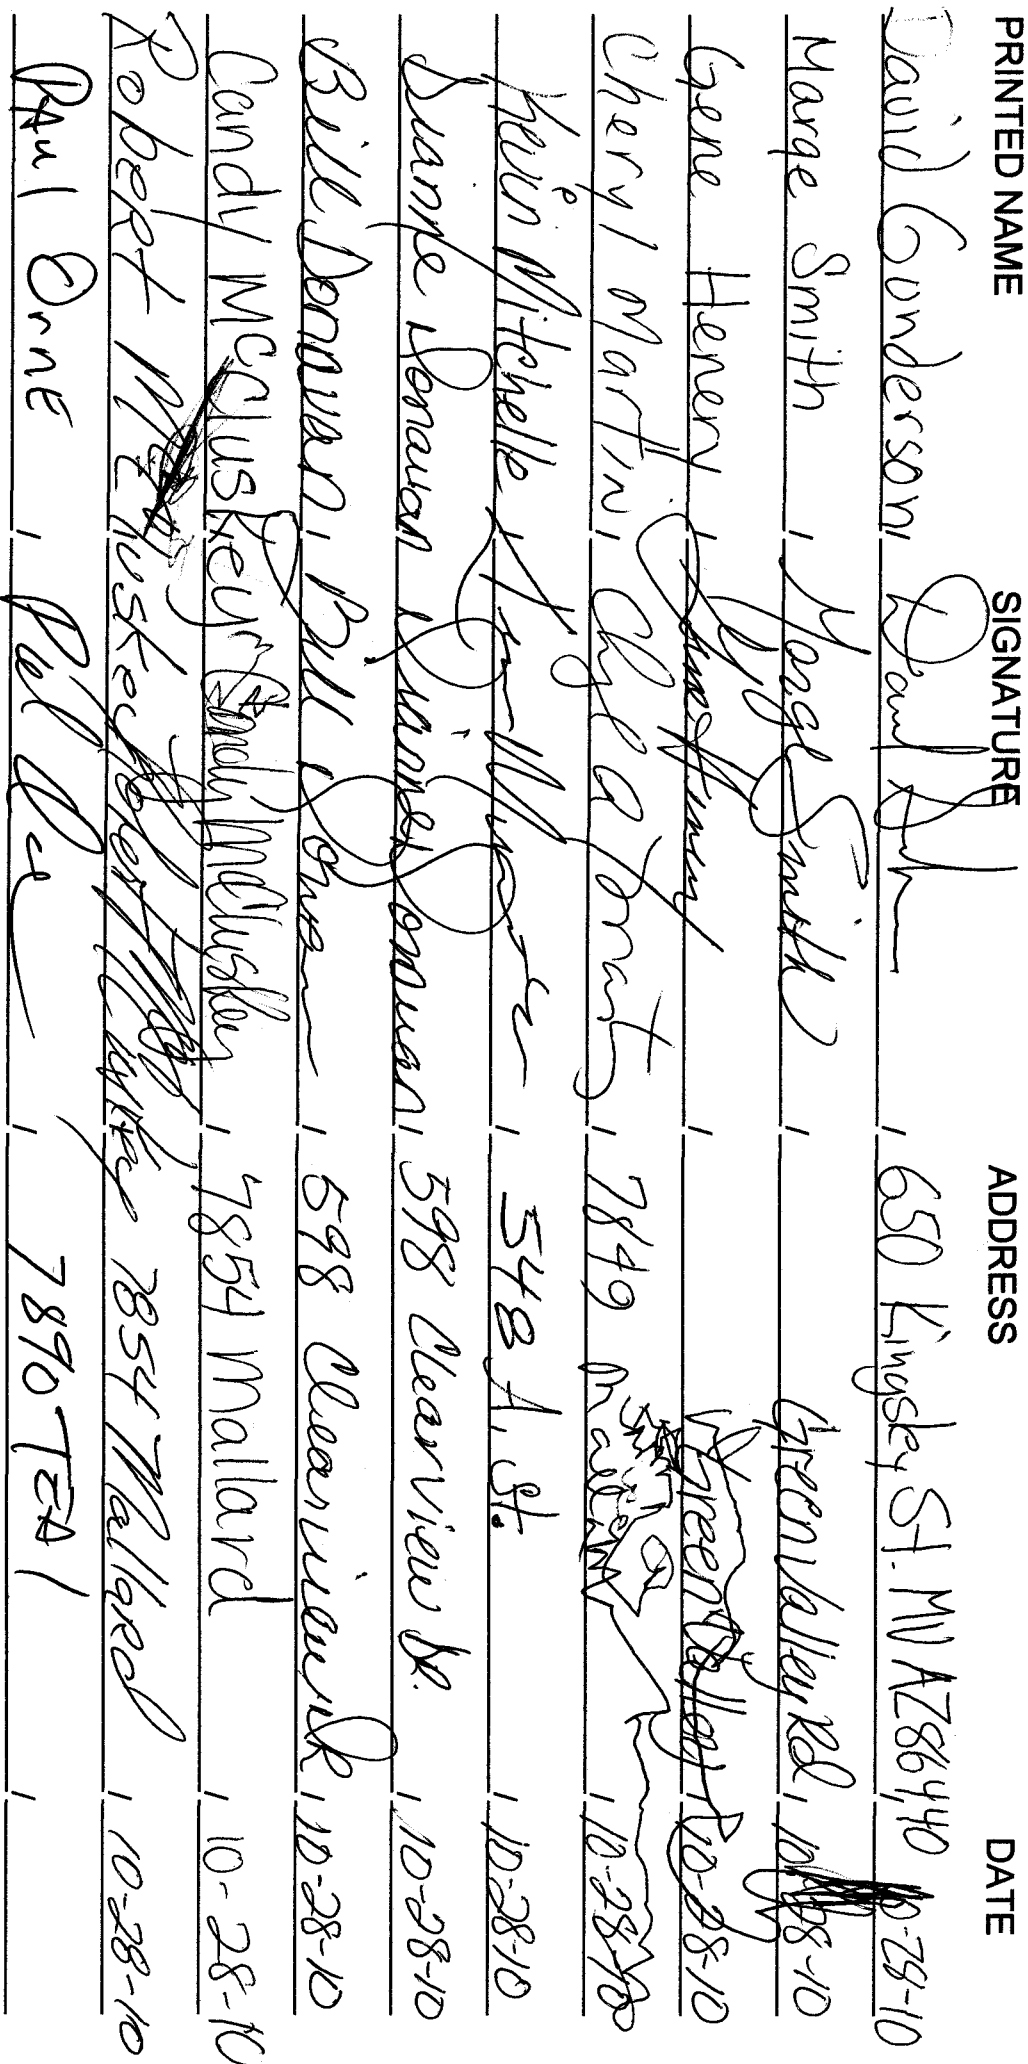 PRINTED NAME SIGNATURE ADDRESS DATE
David Gunderson 650 Kingsley St. MV AZ 86440 10-28-10
Marge Smith Marge Smith Green Valley Rd 10-28-10
Gene Henery Green Valley 10-28-10
Cheryl Martin 7849 10-28-10
Kevin Mitchelle 548 A. St. 10-28-10
Dianne Donavan Dianne Donavan 598 Clearview Dr. 10-28-10
Bill Donavan Bill Donavan 598 Clearview Dr 10-28-10
Candy McCluskey Candy McCluskey 7854 Mallard 10-28-10
Robert McCluskey 7854 Mallard 10-28-10
PAul OrnE 7890 TEAl